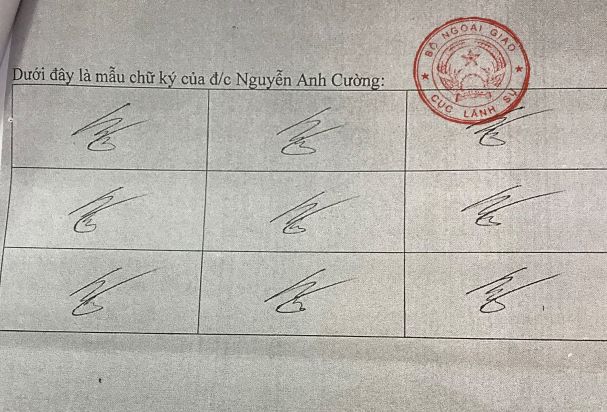 Dưới đây là mẫu chữ ký của đ/c Nguyễn Anh Cường:
BỘ NGOẠI GIAO
CỤC LÃNH SỰ